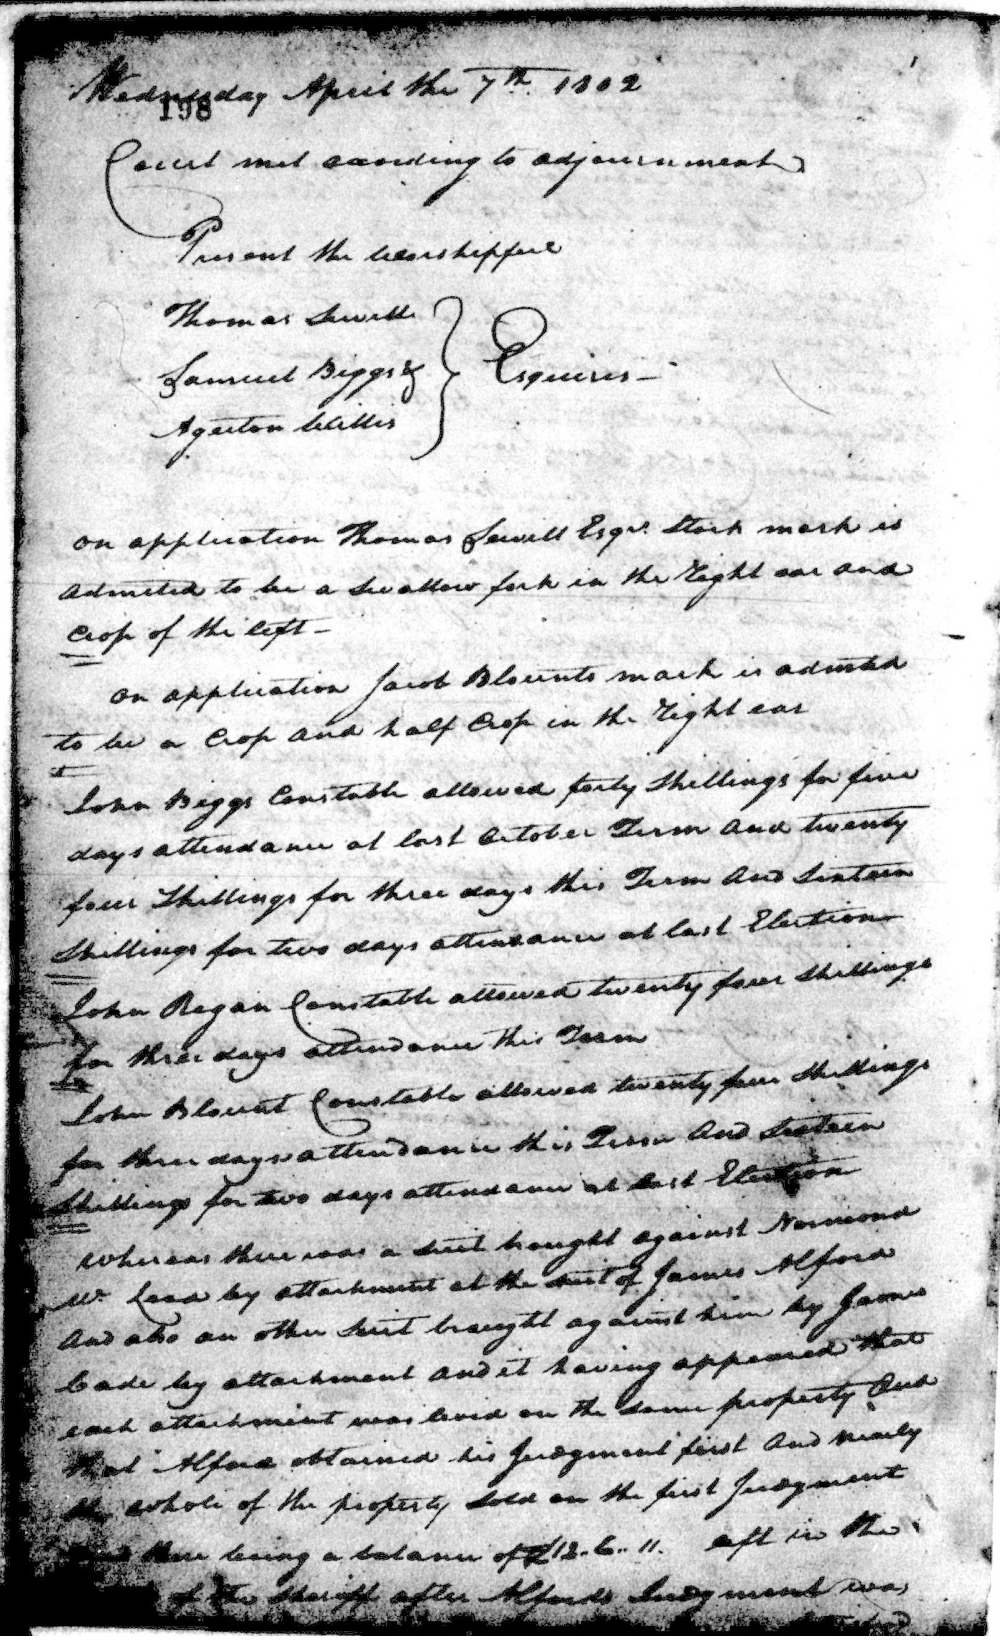 Wednesday April the 7th 1802
198
Court met according to adjournment
Present the worshipfull
Thomas Sewell
Samuel Biggs &
Agerton Willis
Esquires
on application Thomas Sewell Esqr. Stock mark is
admited to be a swallow fork in the Right ear and
Crop of the left
on application Jacob Blounts mark is admited
to be a Crop and half Crop in the Right ear
John Biggs Constable allowed forty Shillings for five
days attendance at last October Term and twenty
four Shillings for three days this Term And Sixteen
Shillings for two days attendance at last Election
John Regan Constable allowed twenty four Shillings
for three days attendance this Term
John Blount Constable allowed twenty four Shillings
for three days attendance this Term And Sixteen
Shillings for two days attendance at last Election
Whereas there was a Suit brought against Normond
Mc Lead by attachment at the suit of James Alford
And also an other Suit brought against him by James
Cade by attachment and it having appeared that
each attachment was levid on the same property And
that Alford obtained his Judgment first And nearly
the whole of the property Sold on the first Judgment
there being a balance of £12..6..11. left in the
of the Sheriff after Alfords Judgment was